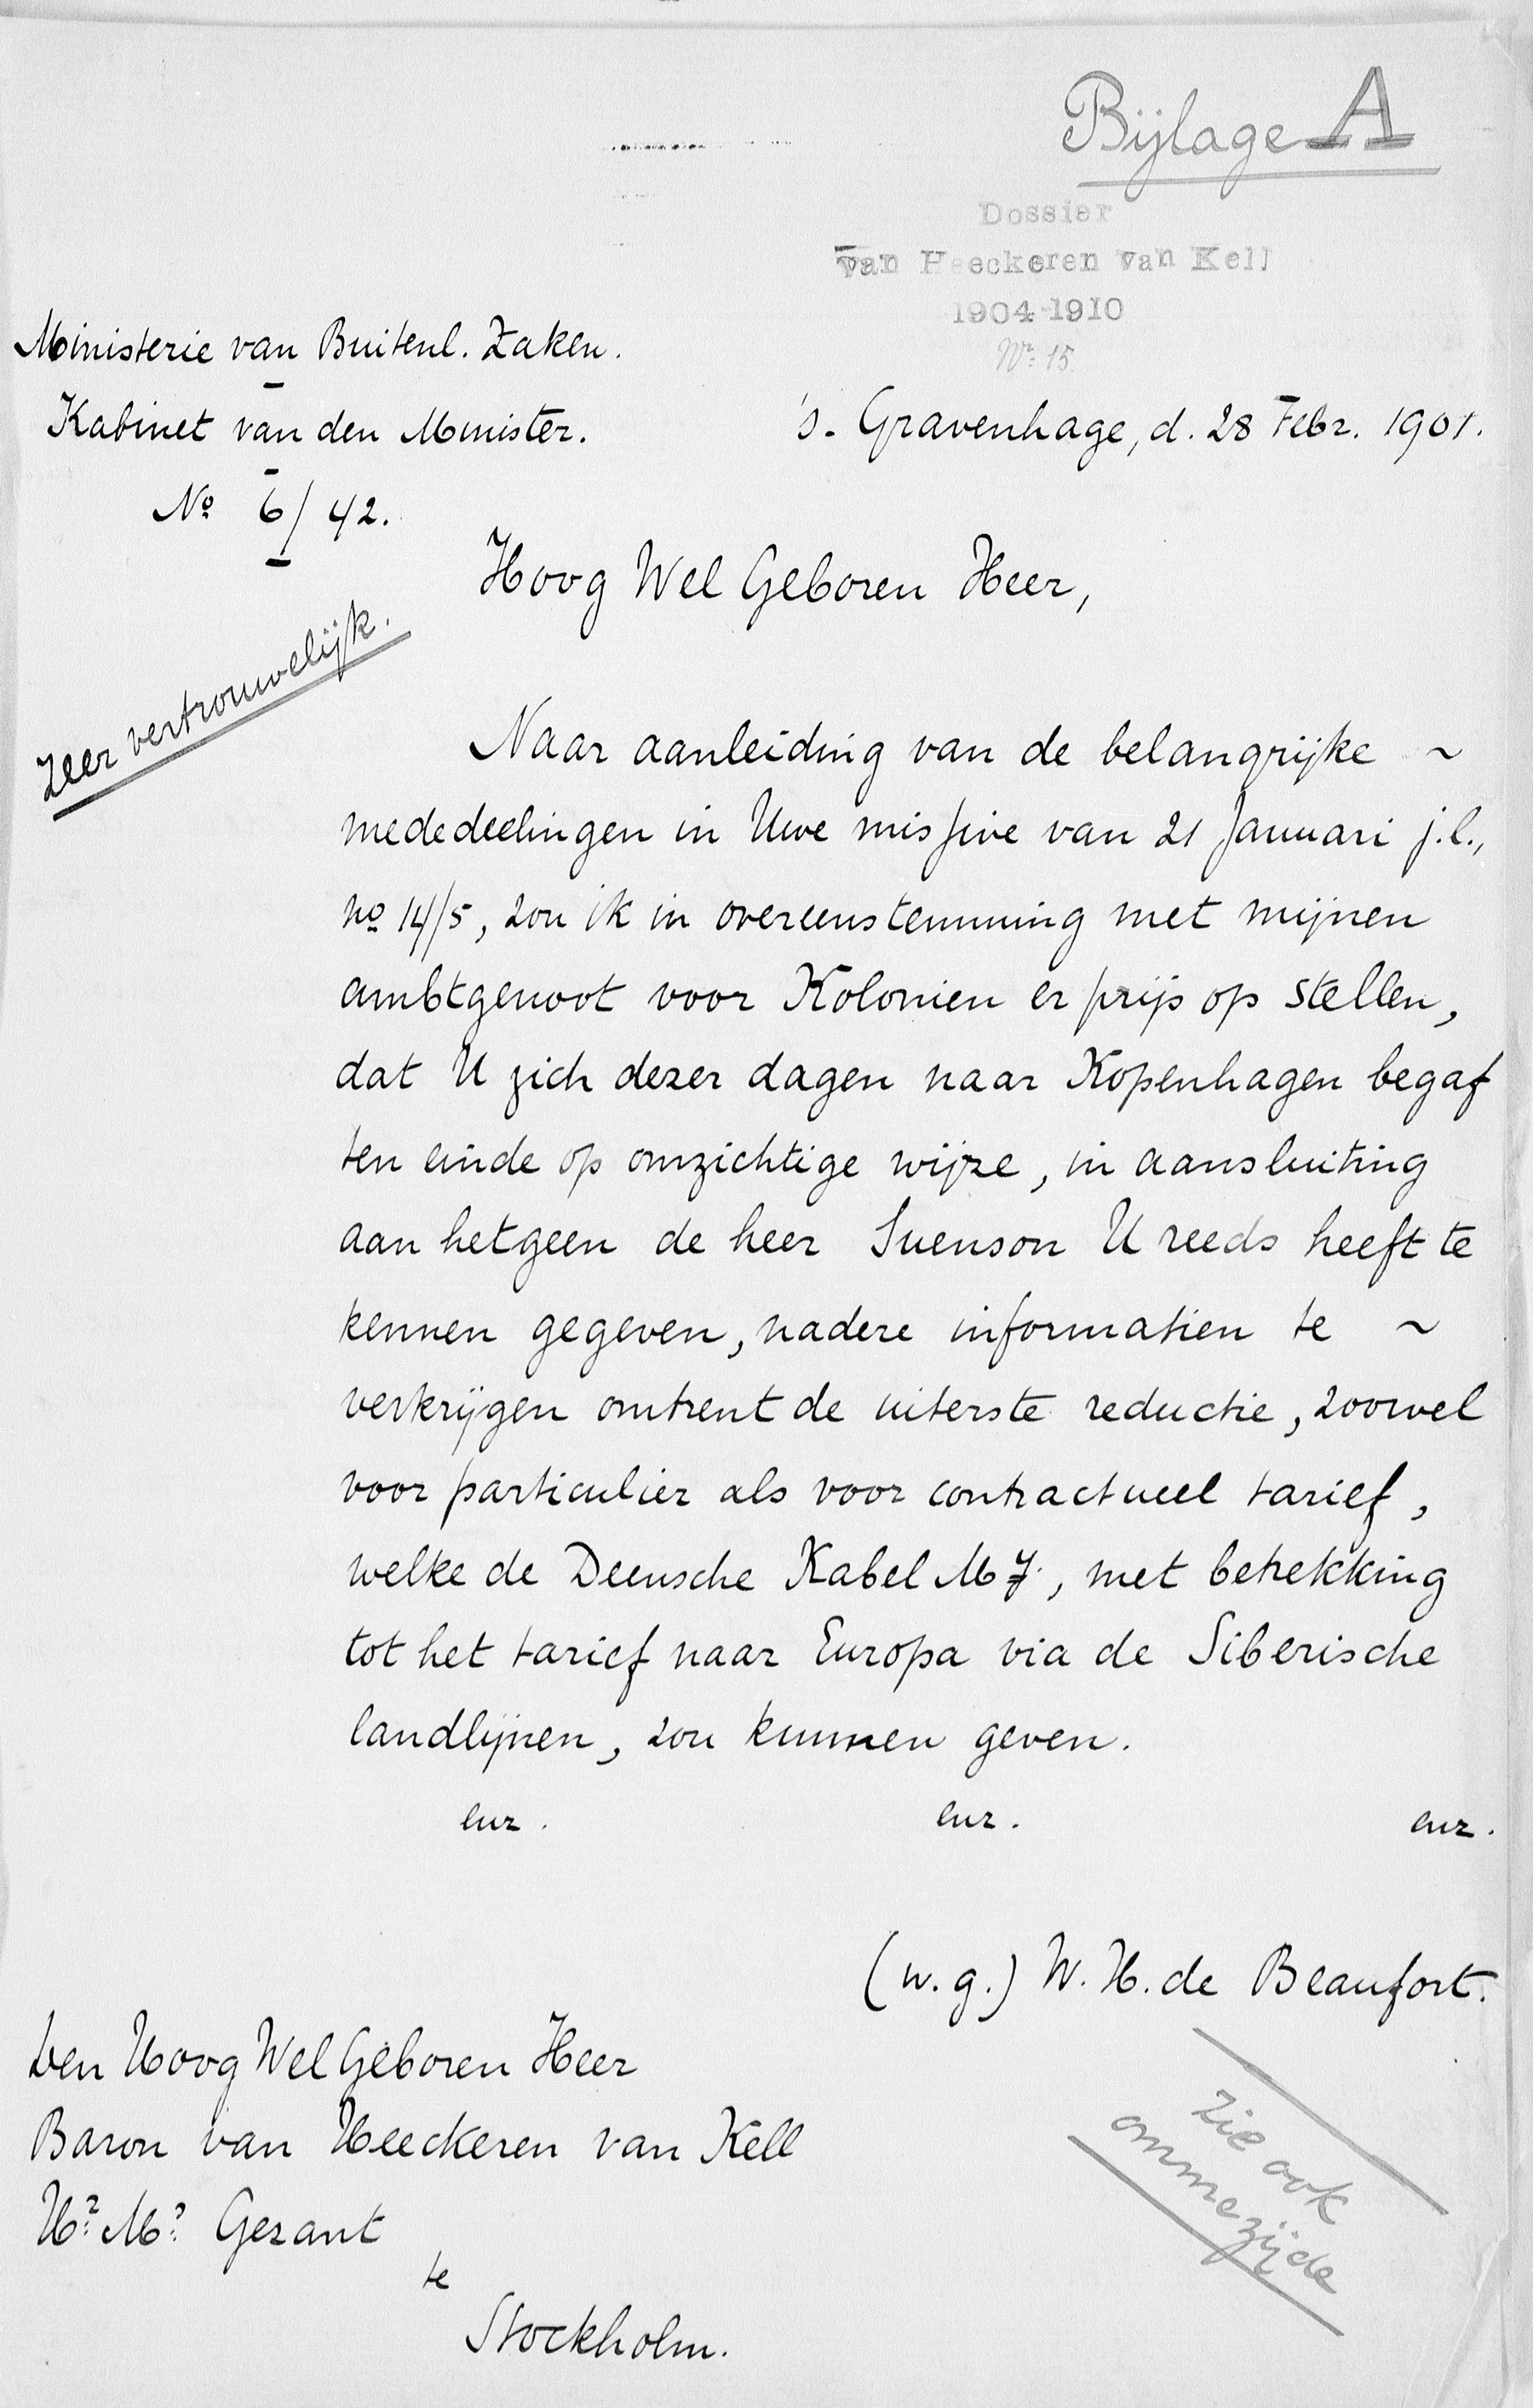 Bijlage A
Dossier
van Heeckeren van Kell
1904-1910
No. 15
Ministerie van Buitenl. Zaken.
Kabinet van den Minister.
's-Gravenhage, d. 28 Febr. 1901.
No 6/42.
Hoog Wel Geboren Heer,
Zeer vertrouwelijk.
Naar aanleiding van de belangrijke ~
mededeelingen in Uwe missive van 21 Januari j.l.,
no 14/5, zou ik in overeenstemming met mijnen
ambtgenoot voor Kolonien er prijs op stellen,
dat U zich dezer dagen naar Kopenhagen begaf
ten einde op omzichtige wijze, in aansluiting
aan hetgeen de heer Suenson U reeds heeft te
kennen gegeven, nadere informatien te ~
verkrijgen omtrent de uiterste reductie, zoowel
voor particulier als voor contractueel tarief,
welke de Deensche Kabel Mij., met betrekking
tot het tarief naar Europa via de Siberische
landlijnen, zou kunnen geven.
enz. enz. enz.
(w.g.) W. H. de Beaufort.
Den Hoog Wel Geboren Heer
Baron van Heeckeren van Kell
Hr. Ms. Gezant
te
Stockholm.
zie ook
ommezijde